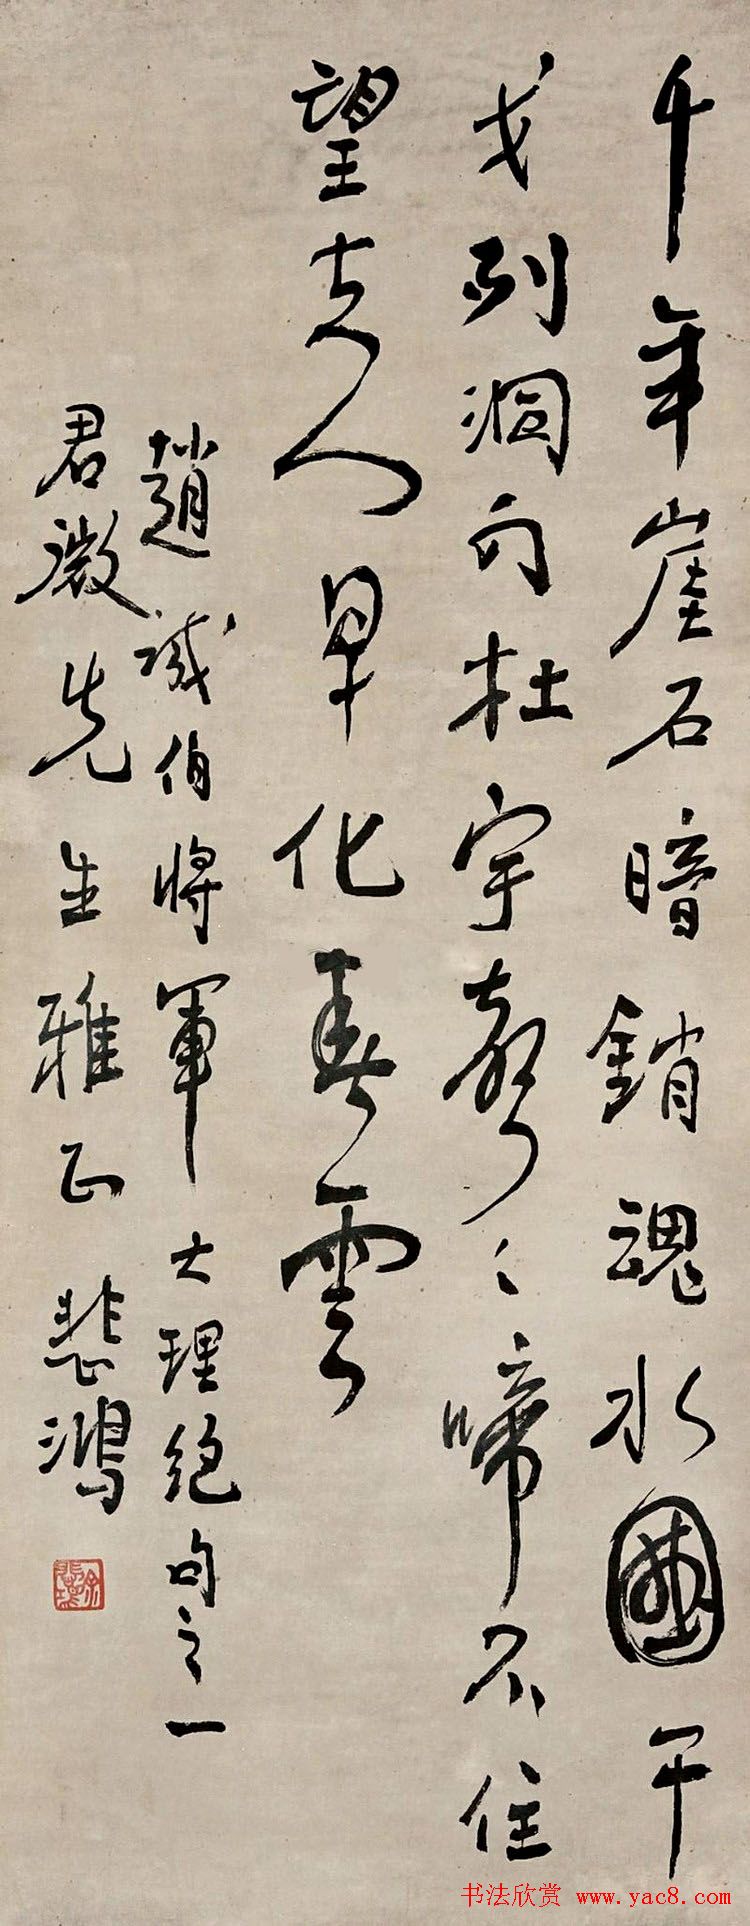 千年崖石暗銷魂水國干
戈到洞門杜宇聲々啼不住
望夫人早化春雲
趙誠伯將軍大理絕句之一
君微先生雅正 悲鴻
书法欣赏 www.yac8.com